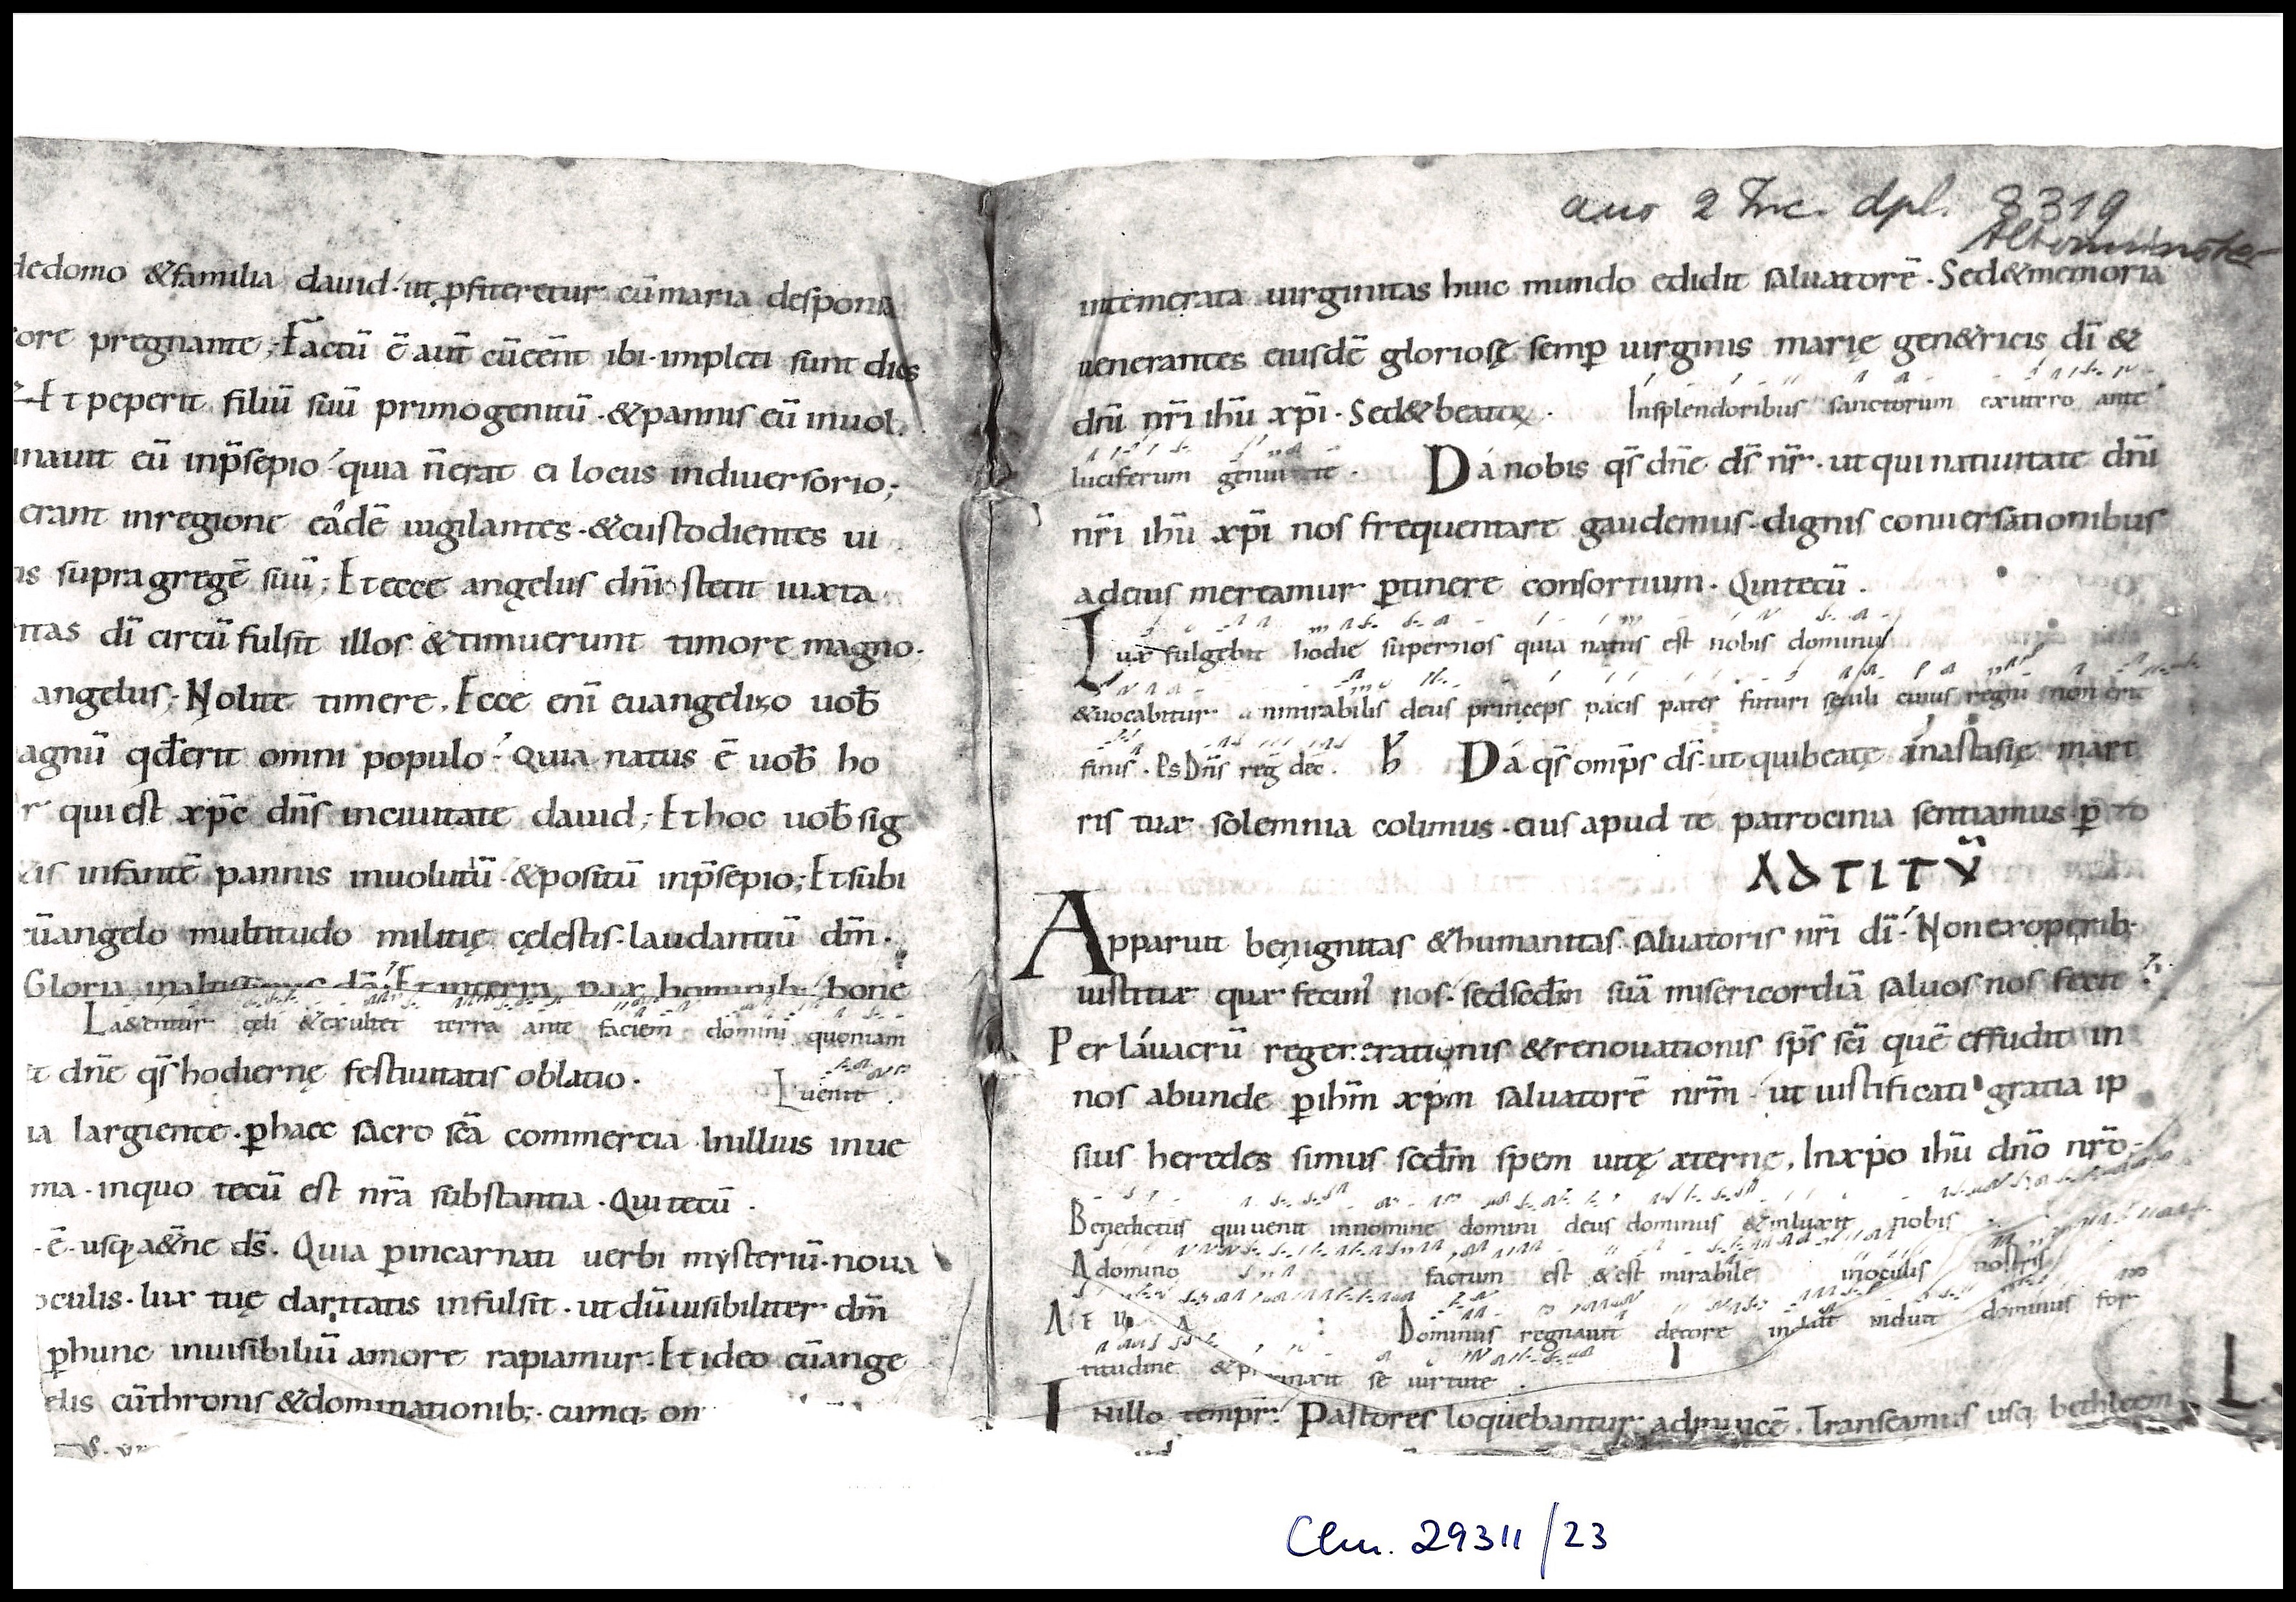 dedomo &familia dauid· ut ꝓfiteretur cū maria desponsa
ore pregnante; Factū ē aut̄ cū eēnt ibi· impleti sunt dies
Et peperit filiū suū primogenitū· &pannis eū inuol
inauit eū inp̄sepio· quia n̄ erat ei locus indiuersorio;
erant inregione eadē uigilantes· &custodientes ui
as supra gregē suū; Et ecce angelus dn̄i stetit iuxta
ritas dī circū fulsit illos &timuerunt timore magno·
angelus; Nolite timere. Ecce enī euangelizo uob̄
agnū qd̄ erit omni populo· Quia natus ē uob̄ ho
r qui est xp̄c dn̄s inciuitate dauid; Et hoc uob̄ sig
is infantē pannis inuolutū· &positū inp̄sepio; Et subi
cū angelo multitudo militię cęlestis· laudantiū dm̄·
Gloria inaltissimis dō· Et interra pax hominib; bone
La&entur cęli &exultet terra ante faciem domini quoniam
t dn̄e qs̄ hodiernę festiuitatis oblatio· uenit .
ia largiente· ꝑ haec sacro sc̄a commercia· inillius inue
ma· inquo tecū est nr̄a substantia· Qui tecū .
ē· usq; a&ne ds̄. Quia ꝑ incarnati uerbi mysteriū· noua
oculis· lux tuę claritatis infulsit· ut dū uisibiliter dm̄
ꝑ hunc inuisibiliū amore rapiamur· Et ideo cū ange
elis cū thronis &dominationib;· cumq; om
auo 2 Inc. dpl. 3319
Altomünster
intemerata uirginitas huic mundo edidit saluatorē· Sed&memoria
uenerantes eiusdē gloriosę semꝑ uirginis marię gen&ricis dī &
dn̄i nr̄i ihū xp̄i· Sed&beatoꝝ . Insplendoribus sanctorum exutero ante
luciferum genui te . Da nobis qs̄ dn̄e ds̄ nr̄· ut qui natiuitate dn̄i
nr̄i ihū xp̄i nos frequentare gaudemus· dignis conuersationibus
adeius mereamur ꝑtinere consortium· Qui tecū .
Lux fulgebit hodie super nos quia natus est nobis dominus
&uocabitur ammirabilis deus princeps pacis pater futuri sęculi cuius regni non erit
finis . Ps Dn̄s reg̅ dec̄ . Da qs̄ omp̄s ds̄· ut qui beatę anastasię mart
ris tuæ solemnia colimus· eius apud te patrocinia sentiamus· ꝑ
AD TITŪ
Apparuit benignitas &humanitas saluatoris nr̄i dī· Non exoperib;
iustitiæ quæ fecim' nos· sed scd̄m suā misericordiā saluos nos fecit
Per lauacrū regenerationis &renouationis sp̄s sc̄i quē effudit in
nos abunde ꝑ ihm̄ xpm saluatorē nrm̄· ut iustificati gratia ip
sius heredes simus scd̄m spem uitę æternę, Inxpo ihū dn̄o nr̄o·
Benedictus qui uenit innomine domini deus dominus &inluxit nobis
A domino factum est &est mirabile inoculis nostris
Dominus regnauit decore induit induit dominus for
titudine &precinxit se uirtute .
In illo tempr̄: Pastores loquebantur adinuicē. Transeamus usq; bethleem
Clm. 29311/23